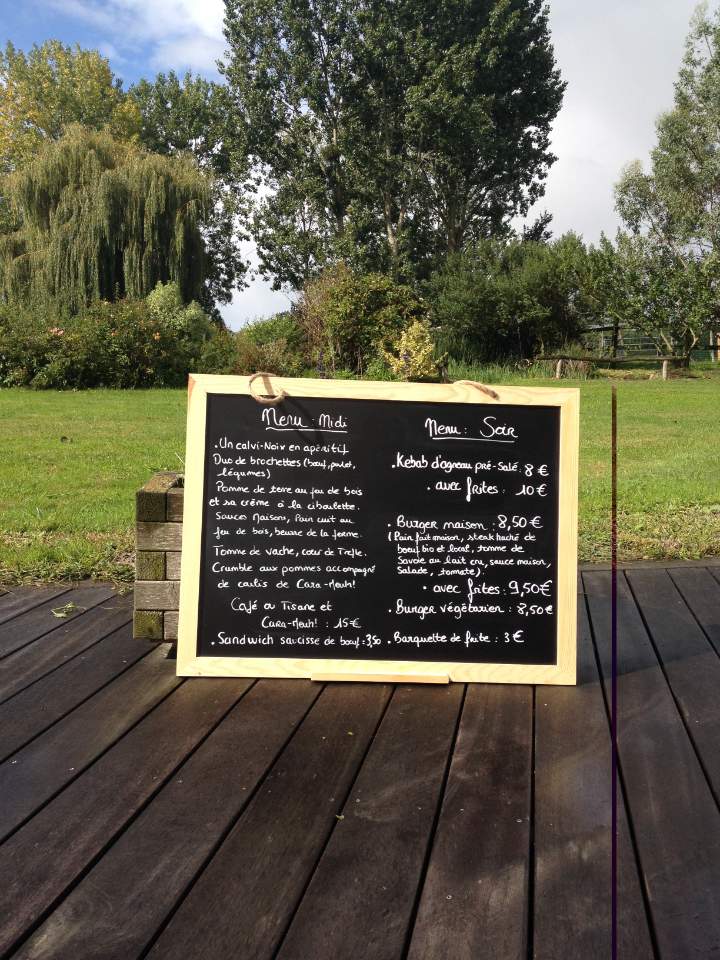 Menu : Midi
• Un calvi-Noix en apéritif
Duo de brochettes (bœuf, poulet,
légumes)
Pomme de terre au feu de bois
et sa crème à la ciboulette.
Sauces Maisons, Pain cuit au
feu de bois, beurre de la ferme.
Tomme de vache, cœur de Trefle.
Crumble aux pommes accompagné
de caslis de Cara-Meuh!
Café ou Tisane et
Cara-Meuh! : 15€
• Sandwich saucisse de bœuf : 3,50
Menu : Soir
• Kebab d'agneau pré-Salé : 8 €
• avec frites : 10€
• Burger maison : 8,50€
(Pain fait maison, steak haché de
bœuf bio et local, tomme de
Savoie au lait cru, sauce maison,
Salade, tomate).
• avec frites : 9,50€
• Burger végétarien : 8,50€
• Barquette de frite : 3 €